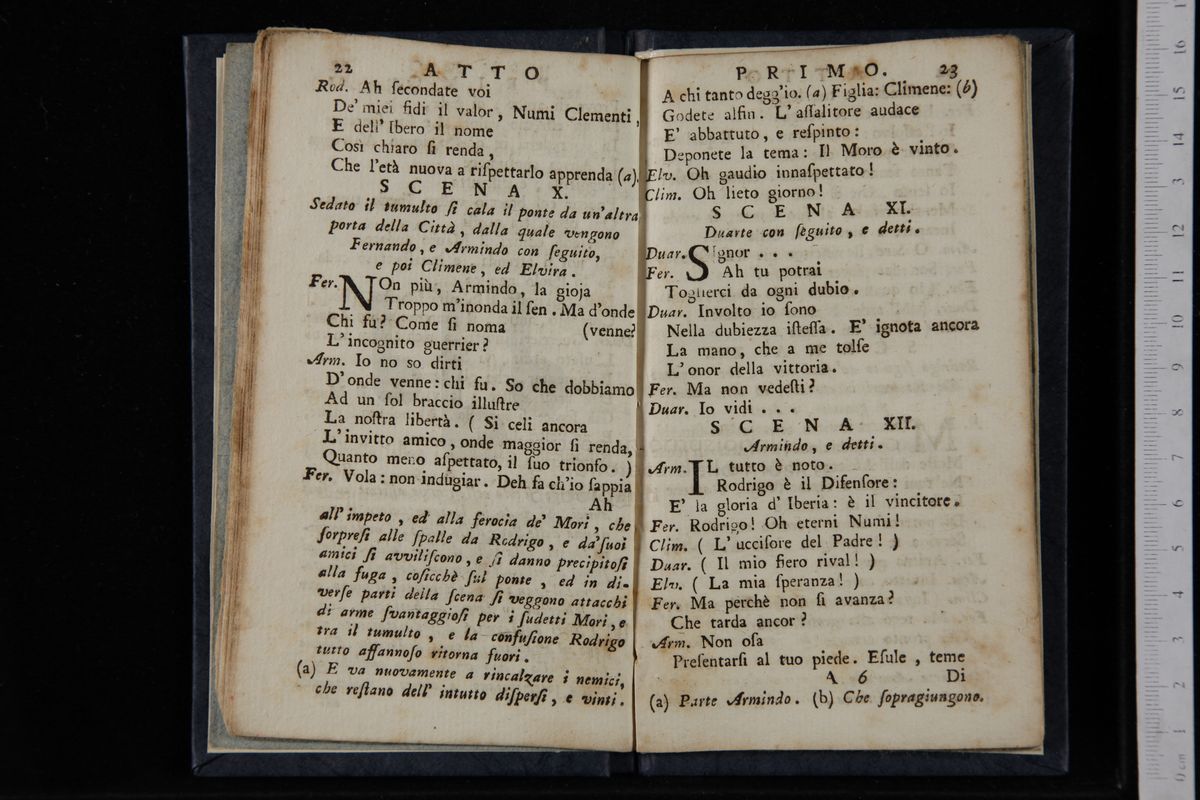 22 ATTO
Rod. Ah ſecondate voi
De' miei fidi il valor, Numi Clementi,
E dell' Ibero il nome
Così chiaro ſi renda,
Che l'età nuova a riſpettarlo apprenda (a).
SCENA X.
Sedato il tumulto ſi cala il ponte da un'altra
porta della Città, dalla quale vengono
Fernando, e Armindo con ſeguito,
e poi Climene, ed Elvira.
Fer. NOn più, Armindo, la gioja
Troppo m'inonda il ſen. Ma d'onde
Chi fu? Come ſi noma (venne?
L'incognito guerrier?
Arm. Io no so dirti
D'onde venne: chi fu. So che dobbiamo
Ad un ſol braccio illuſtre
La noſtra libertà. ( Si celi ancora
L'invitto amico, onde maggior ſi renda,
Quanto meno aſpettato, il ſuo trionfo. )
Fer. Vola: non indugiar. Deh fa ch'io ſappia
Ah
all'impeto, ed alla ferocia de' Mori, che
ſorpreſi alle ſpalle da Rodrigo, e da'ſuoi
amici ſi avviliſcono, e ſi danno precipitoſi
alla fuga, coſicchè ſul ponte, ed in di-
verſe parti della ſcena ſi veggono attacchi
di arme ſvantaggioſi per i ſudetti Mori, e
tra il tumulto, e la confuſione Rodrigo
tutto affannoſo ritorna fuori.
(a) E va nuovamente a rincalzare i nemici,
che reſtano dell' intutto diſperſi, e vinti.
PRIMO. 23
A chi tanto degg'io. (a) Figlia: Climene: (b)
Godete alfin. L'aſſalitore audace
E' abbattuto, e reſpinto:
Deponete la tema: Il Moro è vinto.
Elv. Oh gaudio innaſpettato!
Clim. Oh lieto giorno!
SCENA XI.
Duarte con ſeguito, e detti.
Duar. SIgnor . . .
Fer. Ah tu potrai
Toglierci da ogni dubio.
Duar. Involto io ſono
Nella dubiezza iſteſſa. E' ignota ancora
La mano, che a me tolſe
L'onor della vittoria.
Fer. Ma non vedeſti?
Duar. Io vidi . . .
SCENA XII.
Armindo, e detti.
Arm. IL tutto è noto.
Rodrigo è il Difenſore:
E' la gloria d'Iberia: è il vincitore.
Fer. Rodrigo! Oh eterni Numi!
Clim. ( L'ucciſore del Padre! )
Duar. ( Il mio fiero rival! )
Elv. ( La mia ſperanza! )
Fer. Ma perchè non ſi avanza?
Che tarda ancor?
Arm. Non oſa
Preſentarſi al tuo piede. Eſule, teme
A 6 Di
(a) Parte Armindo. (b) Che ſopragiungono.
0 cm 1 2 3 4 5 6 7 8 9 10 11 12 13 14 15 16 17